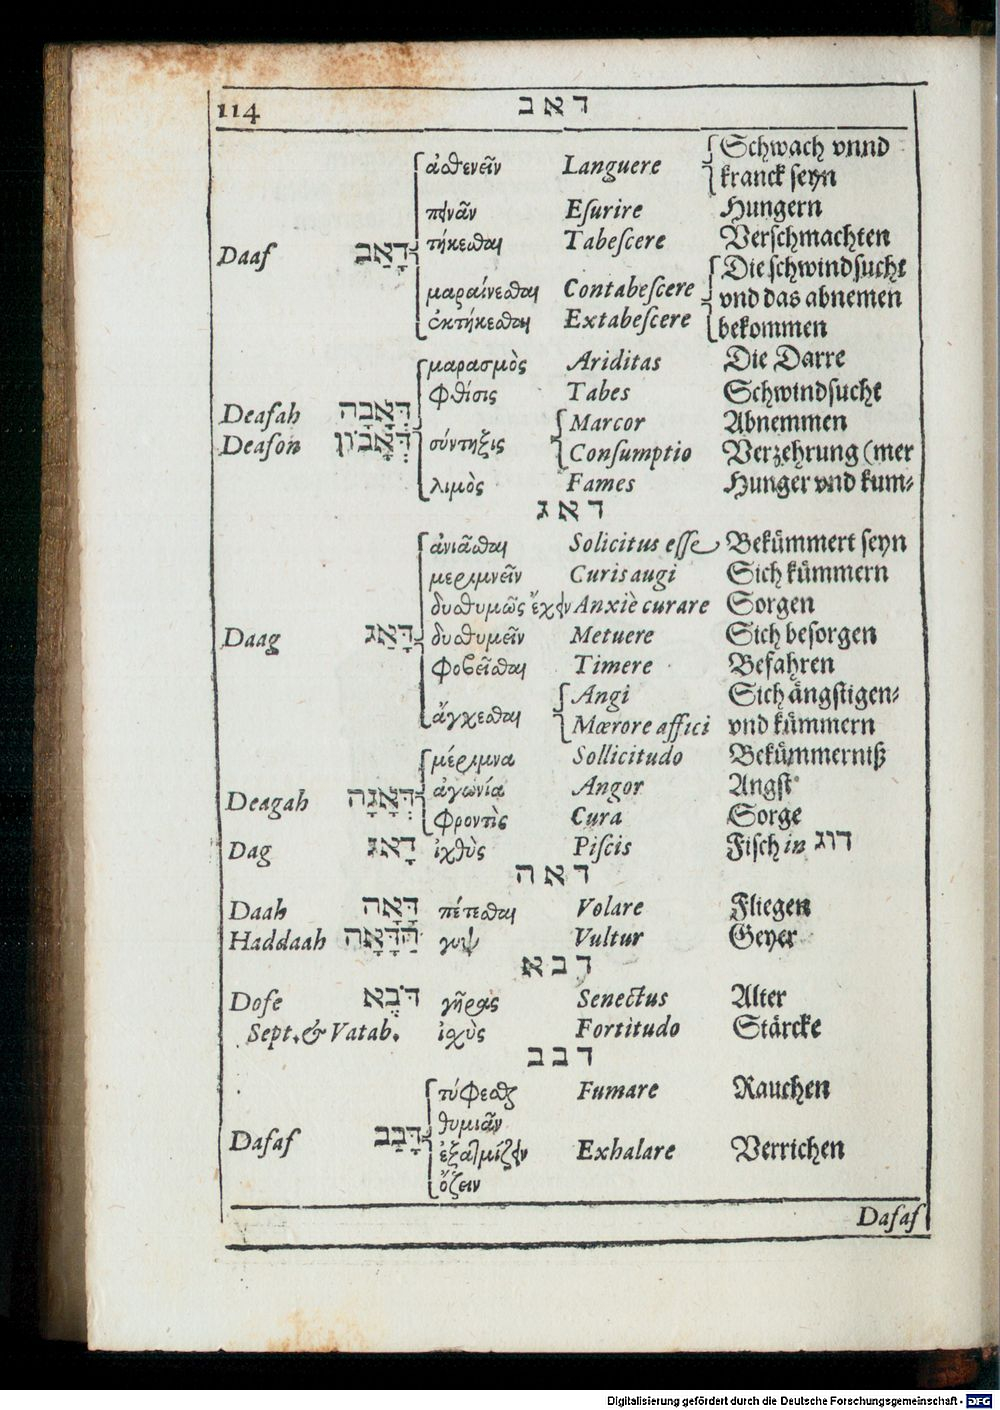 114 דאב
ἀσθενεῖν Languere Schwach vnnd
kranck seyn
πεινᾶν Esurire Hungern
Daaf דָּאַב τήκεσθαι Tabescere Verschmachten
Die schwindsucht
μαραίνεσθαι Contabescere vnd das abnemen
ἐκτήκεσθαι Extabescere bekommen
μαρασμὸς Ariditas Die Darre
φθίσις Tabes Schwindsucht
Deafah דְּאָבָה Marcor Abnemmen
Deafon דְּאָבוֹן σύντηξις Consumptio Verzehrung (mer
λιμὸς Fames Hunger vnd kum-
דאג
ἀνιᾶσθαι Solicitus esse Bekümmert seyn
μεριμνεῖν Curis augi Sich kümmern
δυσθυμῶς ἔχειν Anxiè curare Sorgen
Daag דָּאַג δυσθυμεῖν Metuere Sich besorgen
φοβεῖσθαι Timere Befahren
Angi Sich ängstigen-
ἄγχεσθαι Mærore affici vnd kümmern
μέριμνα Sollicitudo Bekümmerniß
Deagah דְּאָגָה ἀγωνία Angor Angst
φροντὶς Cura Sorge
Dag דָאג ἰχθὺς Piscis Fisch in דוג
דאה
Daah דָּאָה πέτεσθαι Volare Fliegen
Haddaah הַדָּאָה γυψ Vultur Geyer
דבא
Dofe דֹּבֶא γῆρας Senectus Alter
Sept. & Vatab. ἰσχὺς Fortitudo Stärcke
דבב
τύφεσθαι Fumare Rauchen
θυμιᾶν
Dafaf דָּבַב ἐξατμίζειν Exhalare Verrichen
ὄζειν
Dafaf
Digitalisierung gefördert durch die Deutsche Forschungsgemeinschaft - DFG